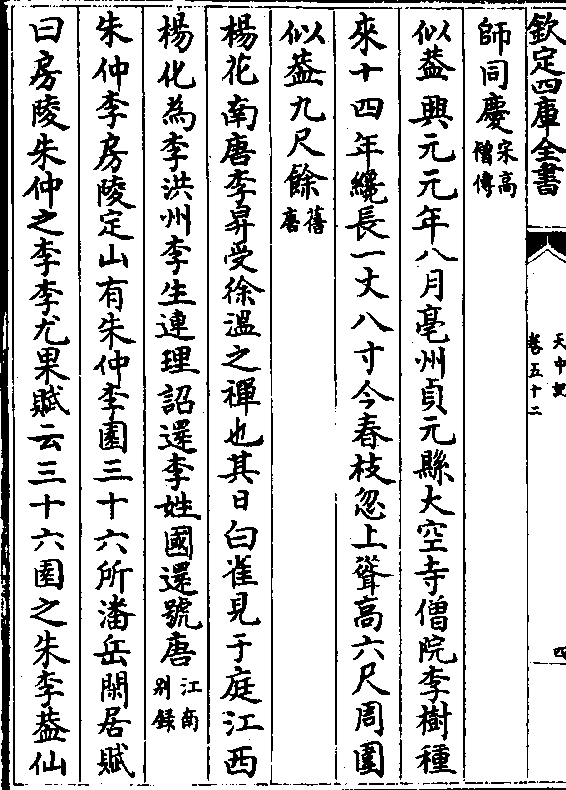 欽定四庫全書
天中記
卷五十二
四
師同慶宋高
僧傳
似葢興元元年八月亳州貞元縣大空寺僧院李樹種
來十四年纔長一丈八寸今春枝忽上聳高六尺周圍
似葢九尺餘舊
唐
楊花南唐李昇受徐溫之禪也其日白雀見于庭江西
楊化為李洪州李生連理詔還李姓國還號唐江南
别錄
朱仲李房陵定山有朱仲李園三十六所潘岳閑居賦
曰房陵朱仲之李李尤果賦云三十六園之朱李葢仙